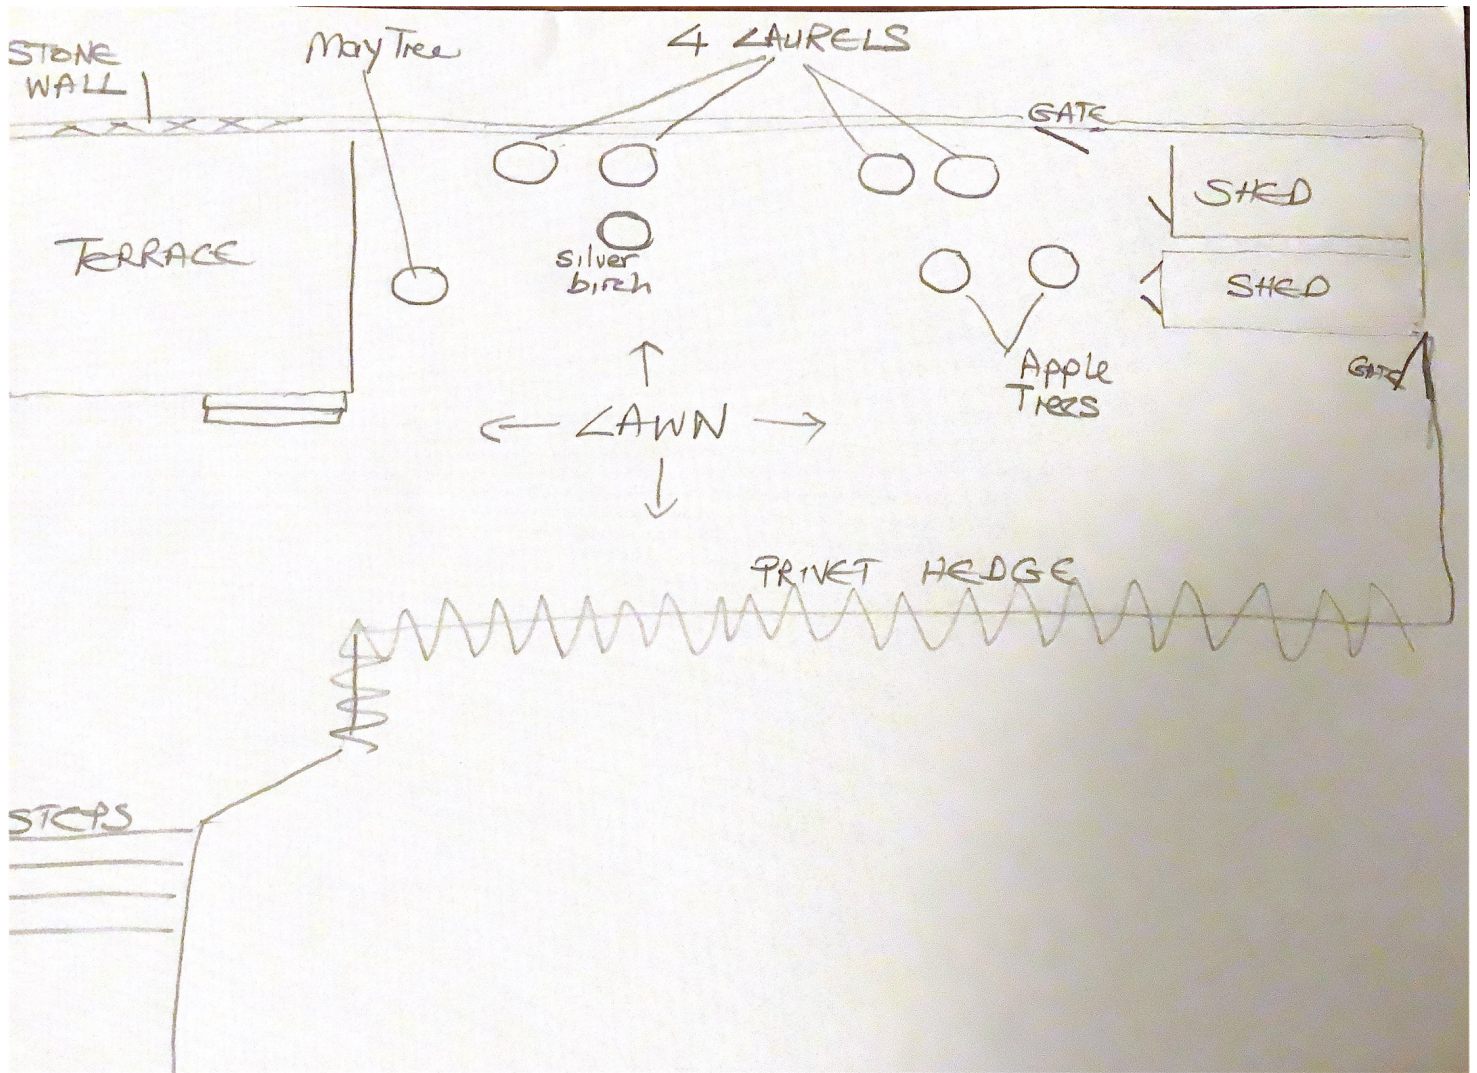 STONE
WALL
May Tree
4 LAURELS
GATE
SHED
TERRACE
silver
birch
SHED
Apple
Trees
GATE
LAWN
PRIVET HEDGE
STEPS